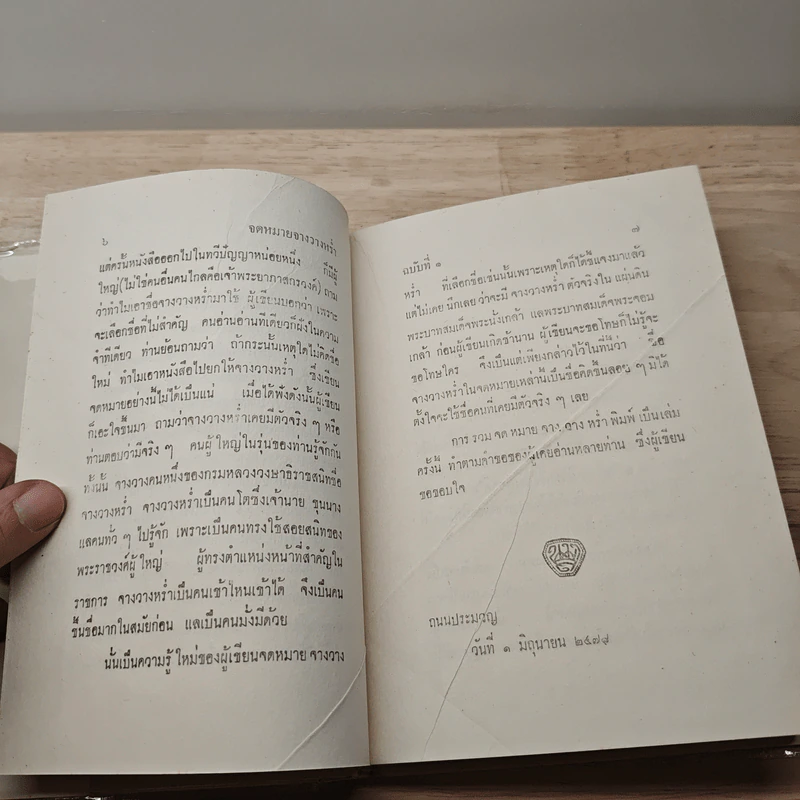 ๖ จดหมายจางวางหร่ำ
แต่ครั้นหนังสือออกไปในทวีปัญญาหน่อยหนึ่ง ก็มีผู้
ใหญ่(ไม่ใช่คนอื่นคนไกลคือเจ้าพระยาภาสกรวงศ์) ถาม
ว่าทำไมเอาชื่อจางวางหร่ำมาใช้ ผู้เขียนบอกว่า เพราะ
จะเลือกชื่อที่ไม่สำคัญ คนอ่านอ่านทีเดียวก็ฝังในความ
จำทีเดียว ท่านย้อนถามว่า ถ้ากระนั้นเหตุใดไม่คิดชื่อ
ใหม่ ทำไมเอาหนังสือไปยกให้จางวางหร่ำ ซึ่งเขียน
จดหมายอย่างนี้ไม่ได้เป็นแน่ เมื่อได้ฟังดังนั้นผู้เขียน
ก็เอะใจขึ้นมา ถามว่าจางวางหร่ำเคยมีตัวจริง ๆ หรือ
ท่านตอบว่ามีจริง ๆ คนผู้ใหญ่ในรุ่นของท่านรู้จักกัน
ทั้งนั้น จางวางคนหนึ่งของกรมหลวงวงษาธิราชสนิทชื่อ
จางวางหร่ำ จางวางหร่ำเป็นคนโตซึ่งเจ้านาย ขุนนาง
แลคนทั่ว ๆ ไปรู้จัก เพราะเป็นคนทรงใช้สอยสนิทของ
พระราชวงศ์ผู้ใหญ่ ผู้ทรงตำแหน่งหน้าที่สำคัญใน
ราชการ จางวางหร่ำเป็นคนเข้าไหนเข้าได้ จึงเป็นคน
ขึ้นชื่อมากในสมัยก่อน แลเป็นคนมั่งมีด้วย
นั่นเป็นความรู้ใหม่ของผู้เขียนจดหมาย จางวาง
๗
ฉบับที่ ๑
หร่ำ ที่เลือกชื่อเช่นนั้นเพราะเหตุใดก็ได้ชี้แจงมาแล้ว
แต่ไม่เคย นึกเลยว่าจะมี จางวางหร่ำ ตัวจริงใน แผ่นดิน
พระบาทสมเด็จพระนั่งเกล้า แลพระบาทสมเด็จพระจอม
เกล้า ก่อนผู้เขียนเกิดช้านาน ผู้เขียนจะขอโทษก็ไม่รู้จะ
ขอโทษใคร จึงเป็นแต่เพียงกล่าวไว้ในที่นี้ว่า ชื่อ
จางวางหร่ำในจดหมายเหล่านี้เป็นชื่อคิดขึ้นลอย ๆ มิได้
ตั้งใจจะใช้ชื่อคนที่เคยมีตัวจริง ๆ เลย
การ รวม จดหมาย จางวาง หร่ำ พิมพ์ เป็นเล่ม
ครั้งนี้ ทำตามคำขอของผู้เคยอ่านหลายท่าน ซึ่งผู้เขียน
ขอขอบใจ
ถนนประมวญ
วันที่ ๑ มิถุนายน ๒๔๗๘